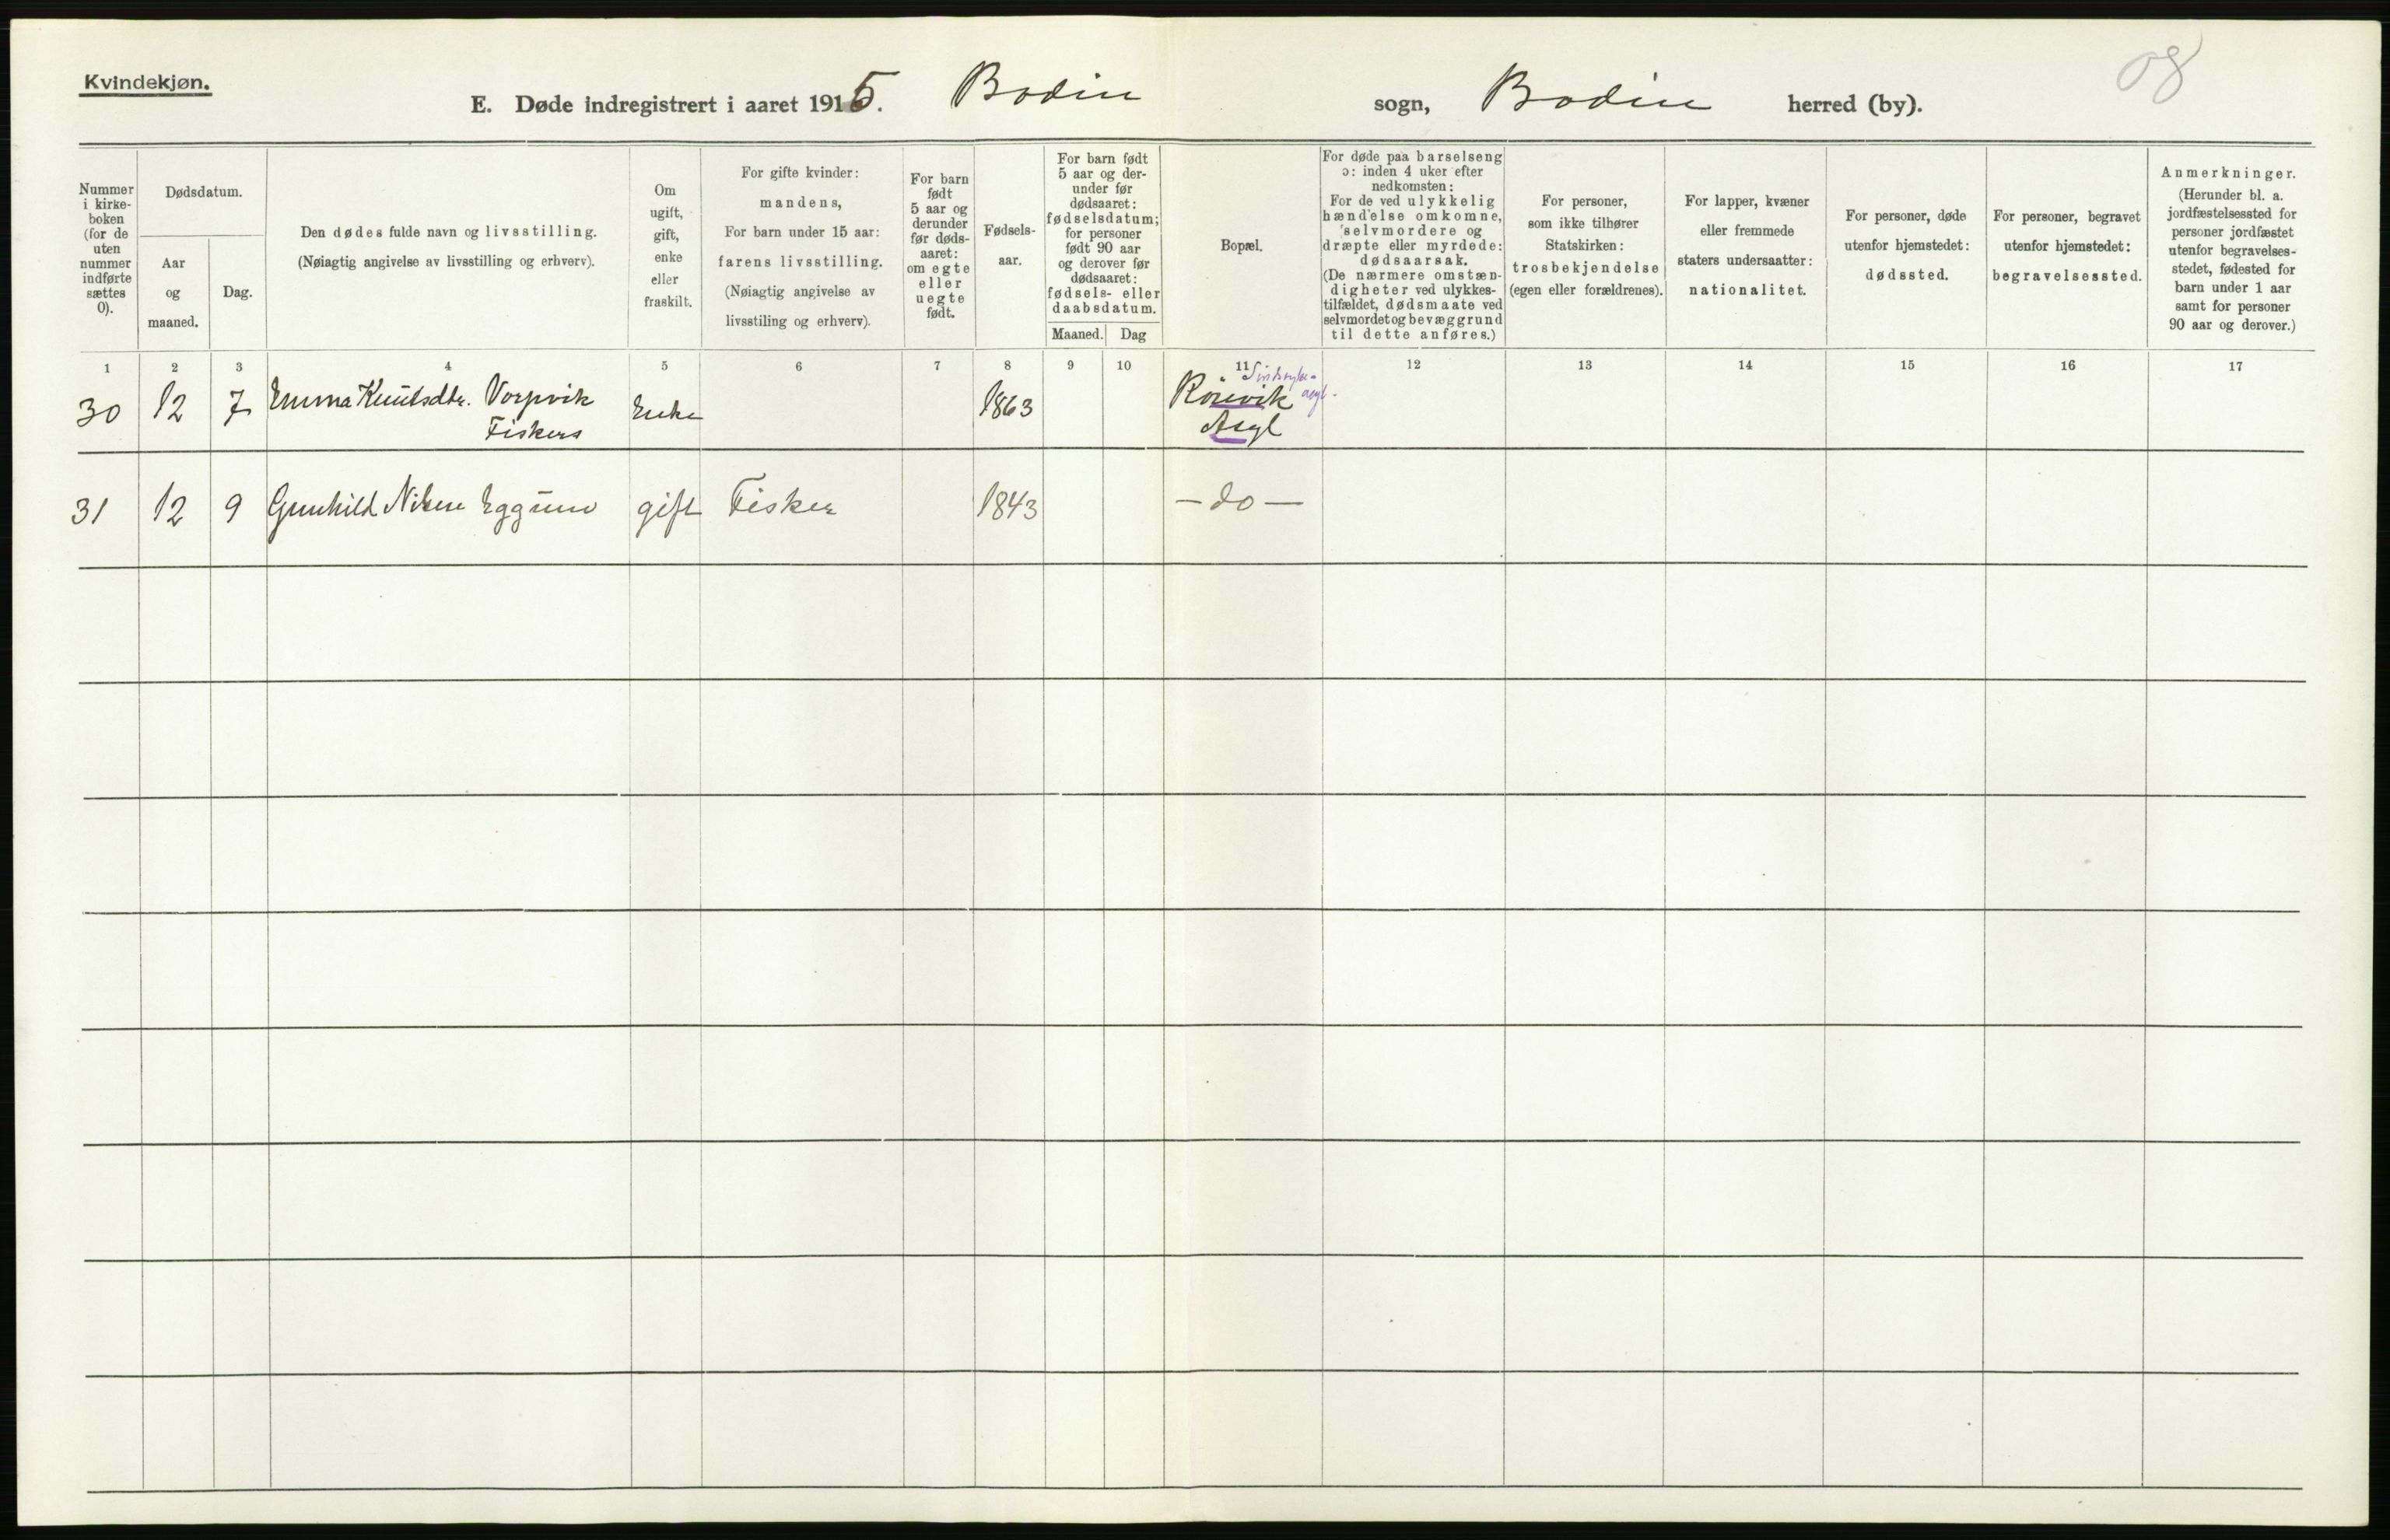 Kvindekjøn.
08
E. Døde indregistrert i aaret 1915. Bodin sogn, Bodin herred (by).
Nummer
i kirke-
boken
(for de
uten
nummer
indførte
sættes
0).
Dødsdatum.
Aar
og
maaned.
Dag.
Den dødes fulde navn og livsstilling.
(Nøiagtig angivelse av livsstilling og erhverv).
Om
ugift,
gift,
enke
eller
fraskilt.
For gifte kvinder:
mandens,
For barn under 15 aar:
farens livsstilling.
(Nøiagtig angivelse av
livsstiling og erhverv).
For barn
født
5 aar og
derunder
før døds-
aaret:
om egte
eller
uegte
født.
Fødsels-
aar.
For barn født
5 aar og der-
under før
dødsaaret:
fødselsdatum;
for personer
født 90 aar
og derover før
dødsaaret:
fødsels- eller
daabsdatum.
Maaned. Dag
Bopæl.
For døde paa barselseng
ɔ: inden 4 uker efter
nedkomsten:
For de ved ulykkelig
hændelse omkomne,
selvmordere og
dræpte eller myrdede:
dødsaarsak.
(De nærmere omstæn-
digheter ved ulykkes-
tilfældet, dødsmaate ved
selvmordet og bevæggrund
til dette anføres.)
For personer,
som ikke tilhører
Statskirken:
trosbekjendelse
(egen eller forældrenes).
For lapper, kvæner
eller fremmede
staters undersaatter:
nationalitet.
For personer, døde
utenfor hjemstedet:
dødssted.
For personer, begravet
utenfor hjemstedet:
begravelsessted.
Anmerkninger.
(Herunder bl. a.
jordfæstelsessted for
personer jordfæstet
utenfor begravelses-
stedet, fødested for
barn under 1 aar
samt for personer
90 aar og derover.)
1 2 3 4 5 6 7 8 9 10 11 12 13 14 15 16 17
Sindssyke-
asyl.
30 12 7 Emma Knutsdtr. Vorpvik Enke 1863 Rönvik
Fiskers Asyl
31 12 9 Gunhild Nilsen Eggum gift Fisker 1843 - do -